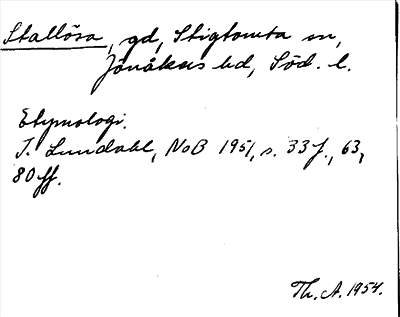 Stallösa, gd, Stigtomta sn,
Jönåkers hd, Söd. l.
Etymologi.
I. Lundahl, NoB 1951, s. 33 f., 63,
80 ff.
Th. A. 1954.